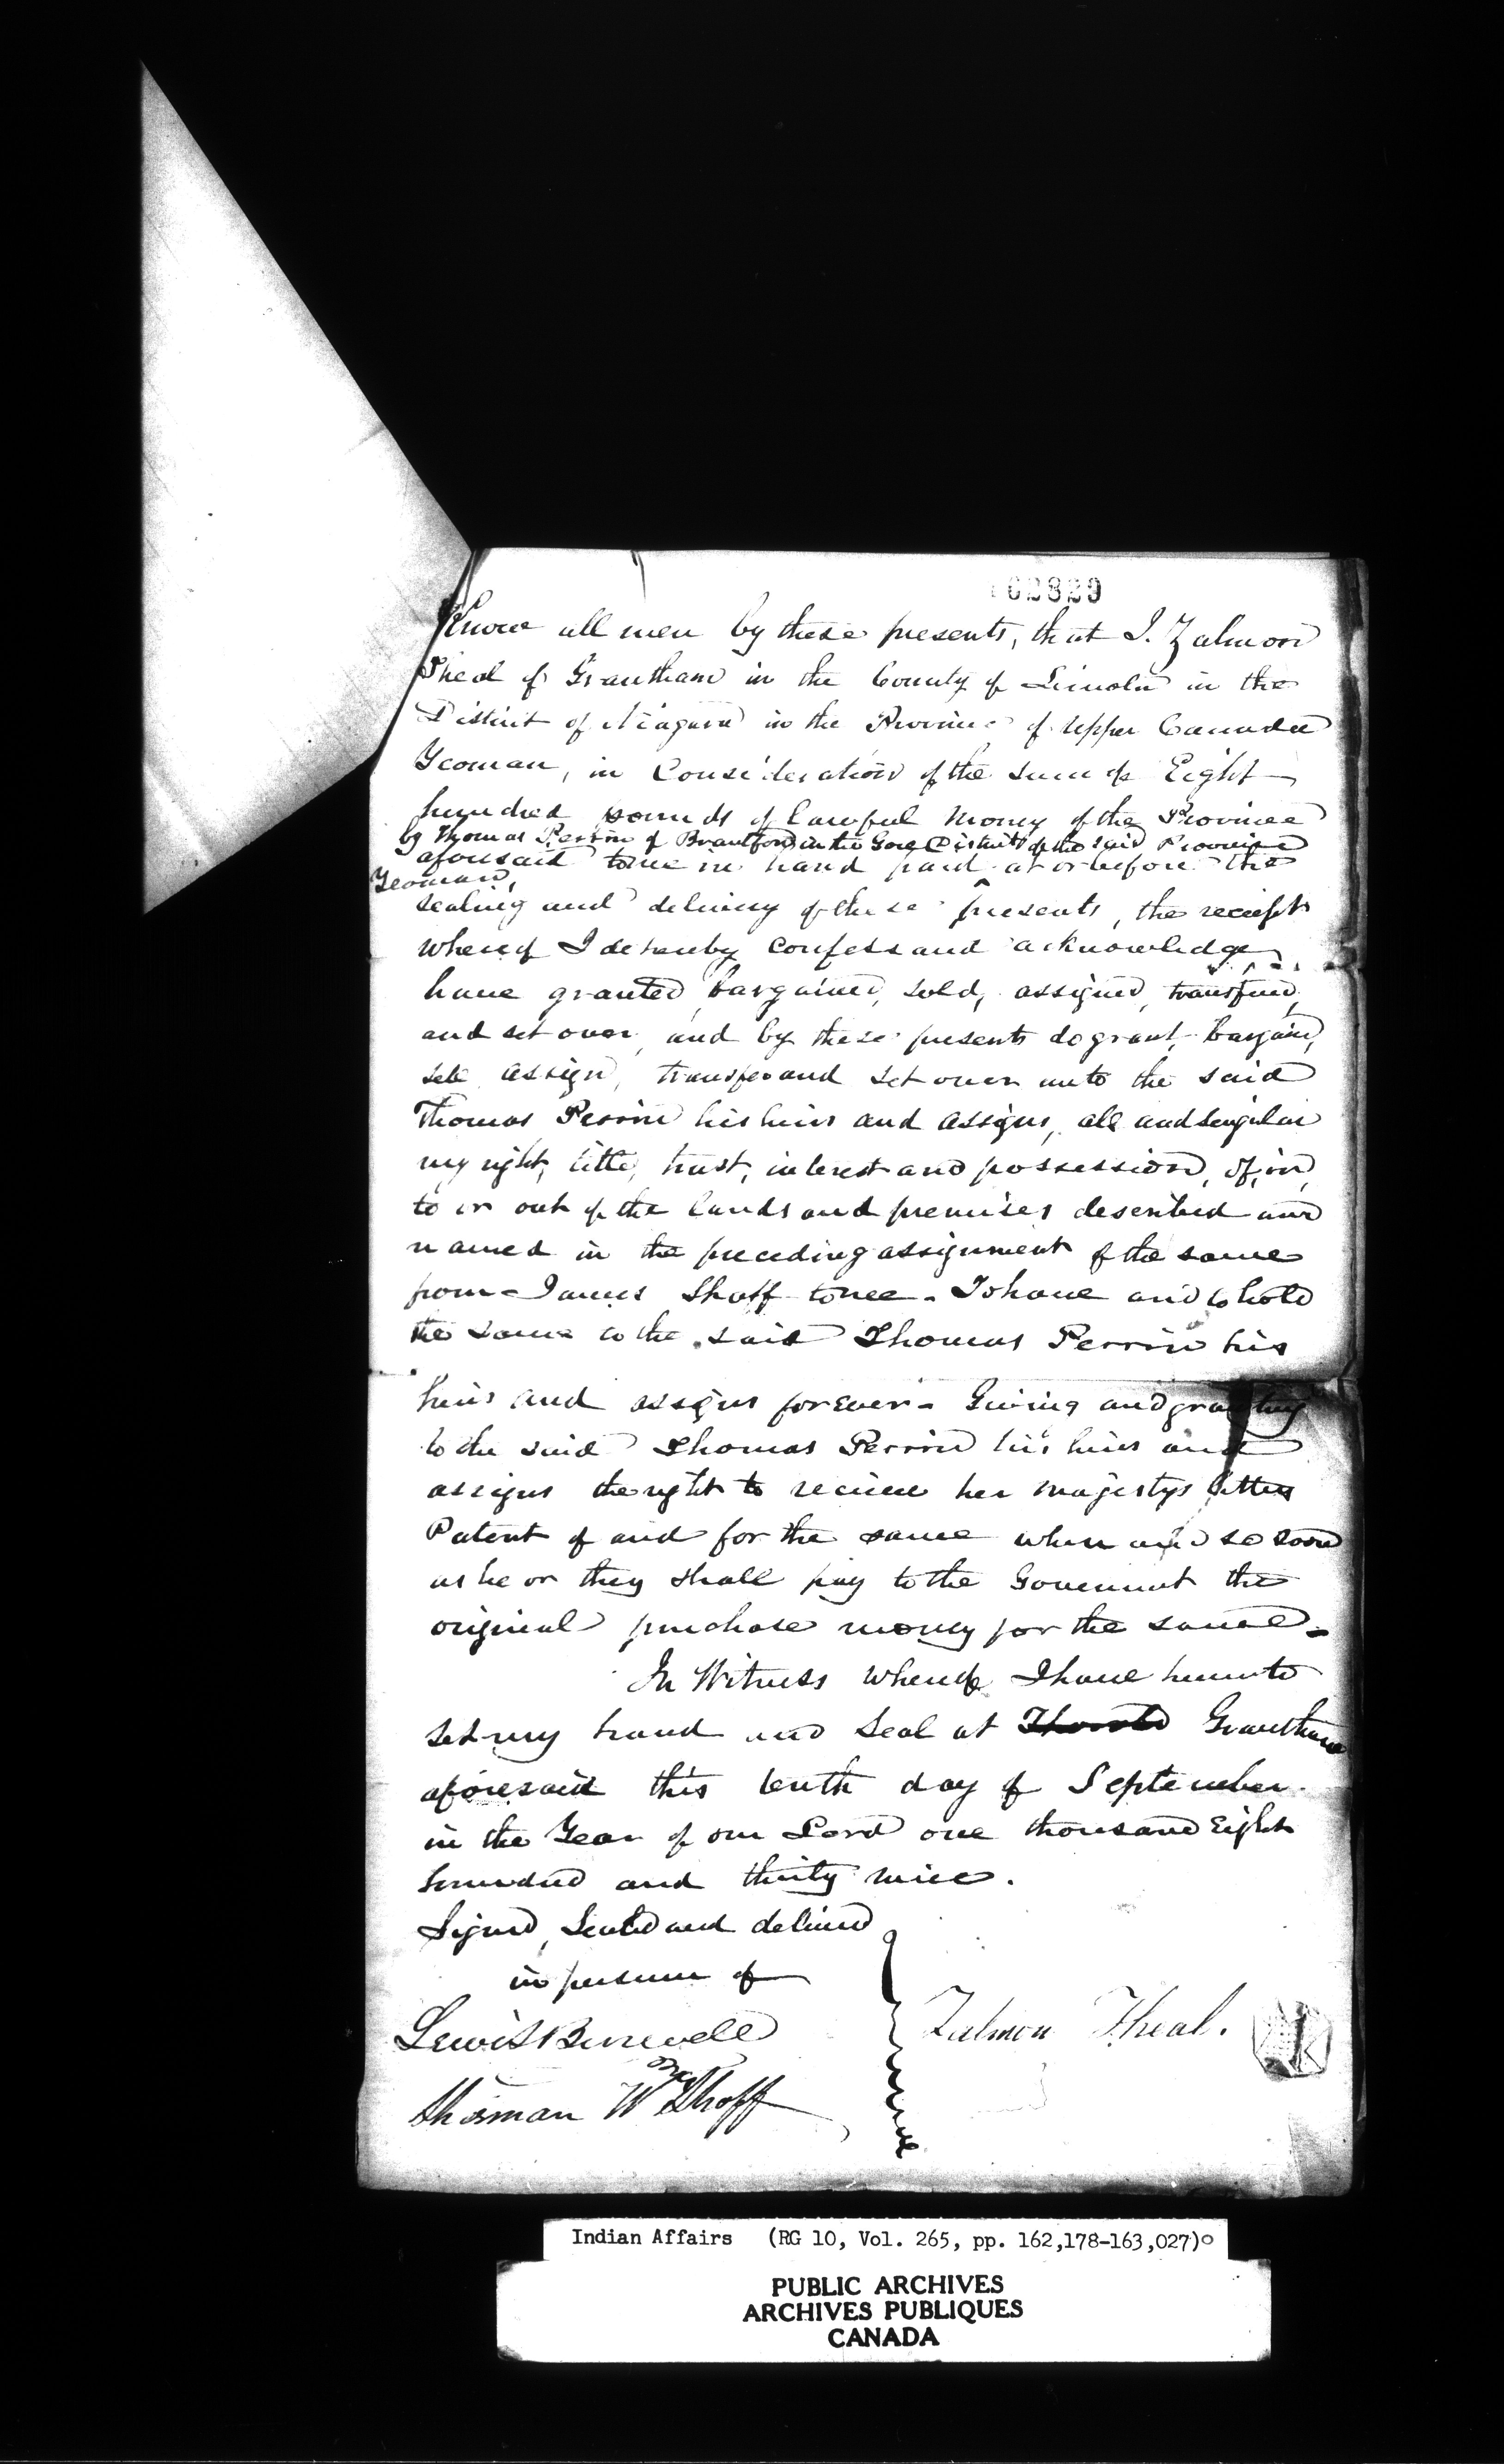 162829
Know all men by these presents, that I. Zalmon
Theal of Grantham in the County of Lincoln in the
District of Niagara in the Province of Upper Canada
Yeoman, in Consideration of the sum of Eight
hundred pounds of lawful Money of the Province
by Thomas Perrin of Brantford in the Gore District of the said Province
aforesaid to me in hand paid at or before the
Yeoman,
sealing and delivery of these presents, the receipt
whereof I do hereby confess and acknowledge,
have granted, bargained, sold, assigned, transfered,
and set over, and by these presents do grant, bargain,
sell, assign, transfer and set over unto the said
Thomas Perrin his heirs and assigns, all and singular
my right, title, trust, interest and possession, of, in,
to or out of the lands and premises described and
named in the preceding assignment of the same
from James Shoff to me - To have and to hold
the same to the said Thomas Perrin his
heirs and assigns forever - Giving and granting
to the said Thomas Perrin his heirs and
assigns the right to receive her majestys letters
Patent of and for the same when and so soon
as he or they shall pay to the Government the
original purchase money for the same -
In Witness whereof I have hereunto
set my hand and seal at Thorold Grantham
aforesaid this tenth day of September
in the Year of our Lord one thousand Eight
hundred and thirty nine.
Signed, Sealed and delivered
in presence of
Lewis Burwell
Zalmon Theal.
W Shoff
Indian Affairs (RG 10, Vol. 265, pp. 162,178-163,027)
PUBLIC ARCHIVES
ARCHIVES PUBLIQUES
CANADA